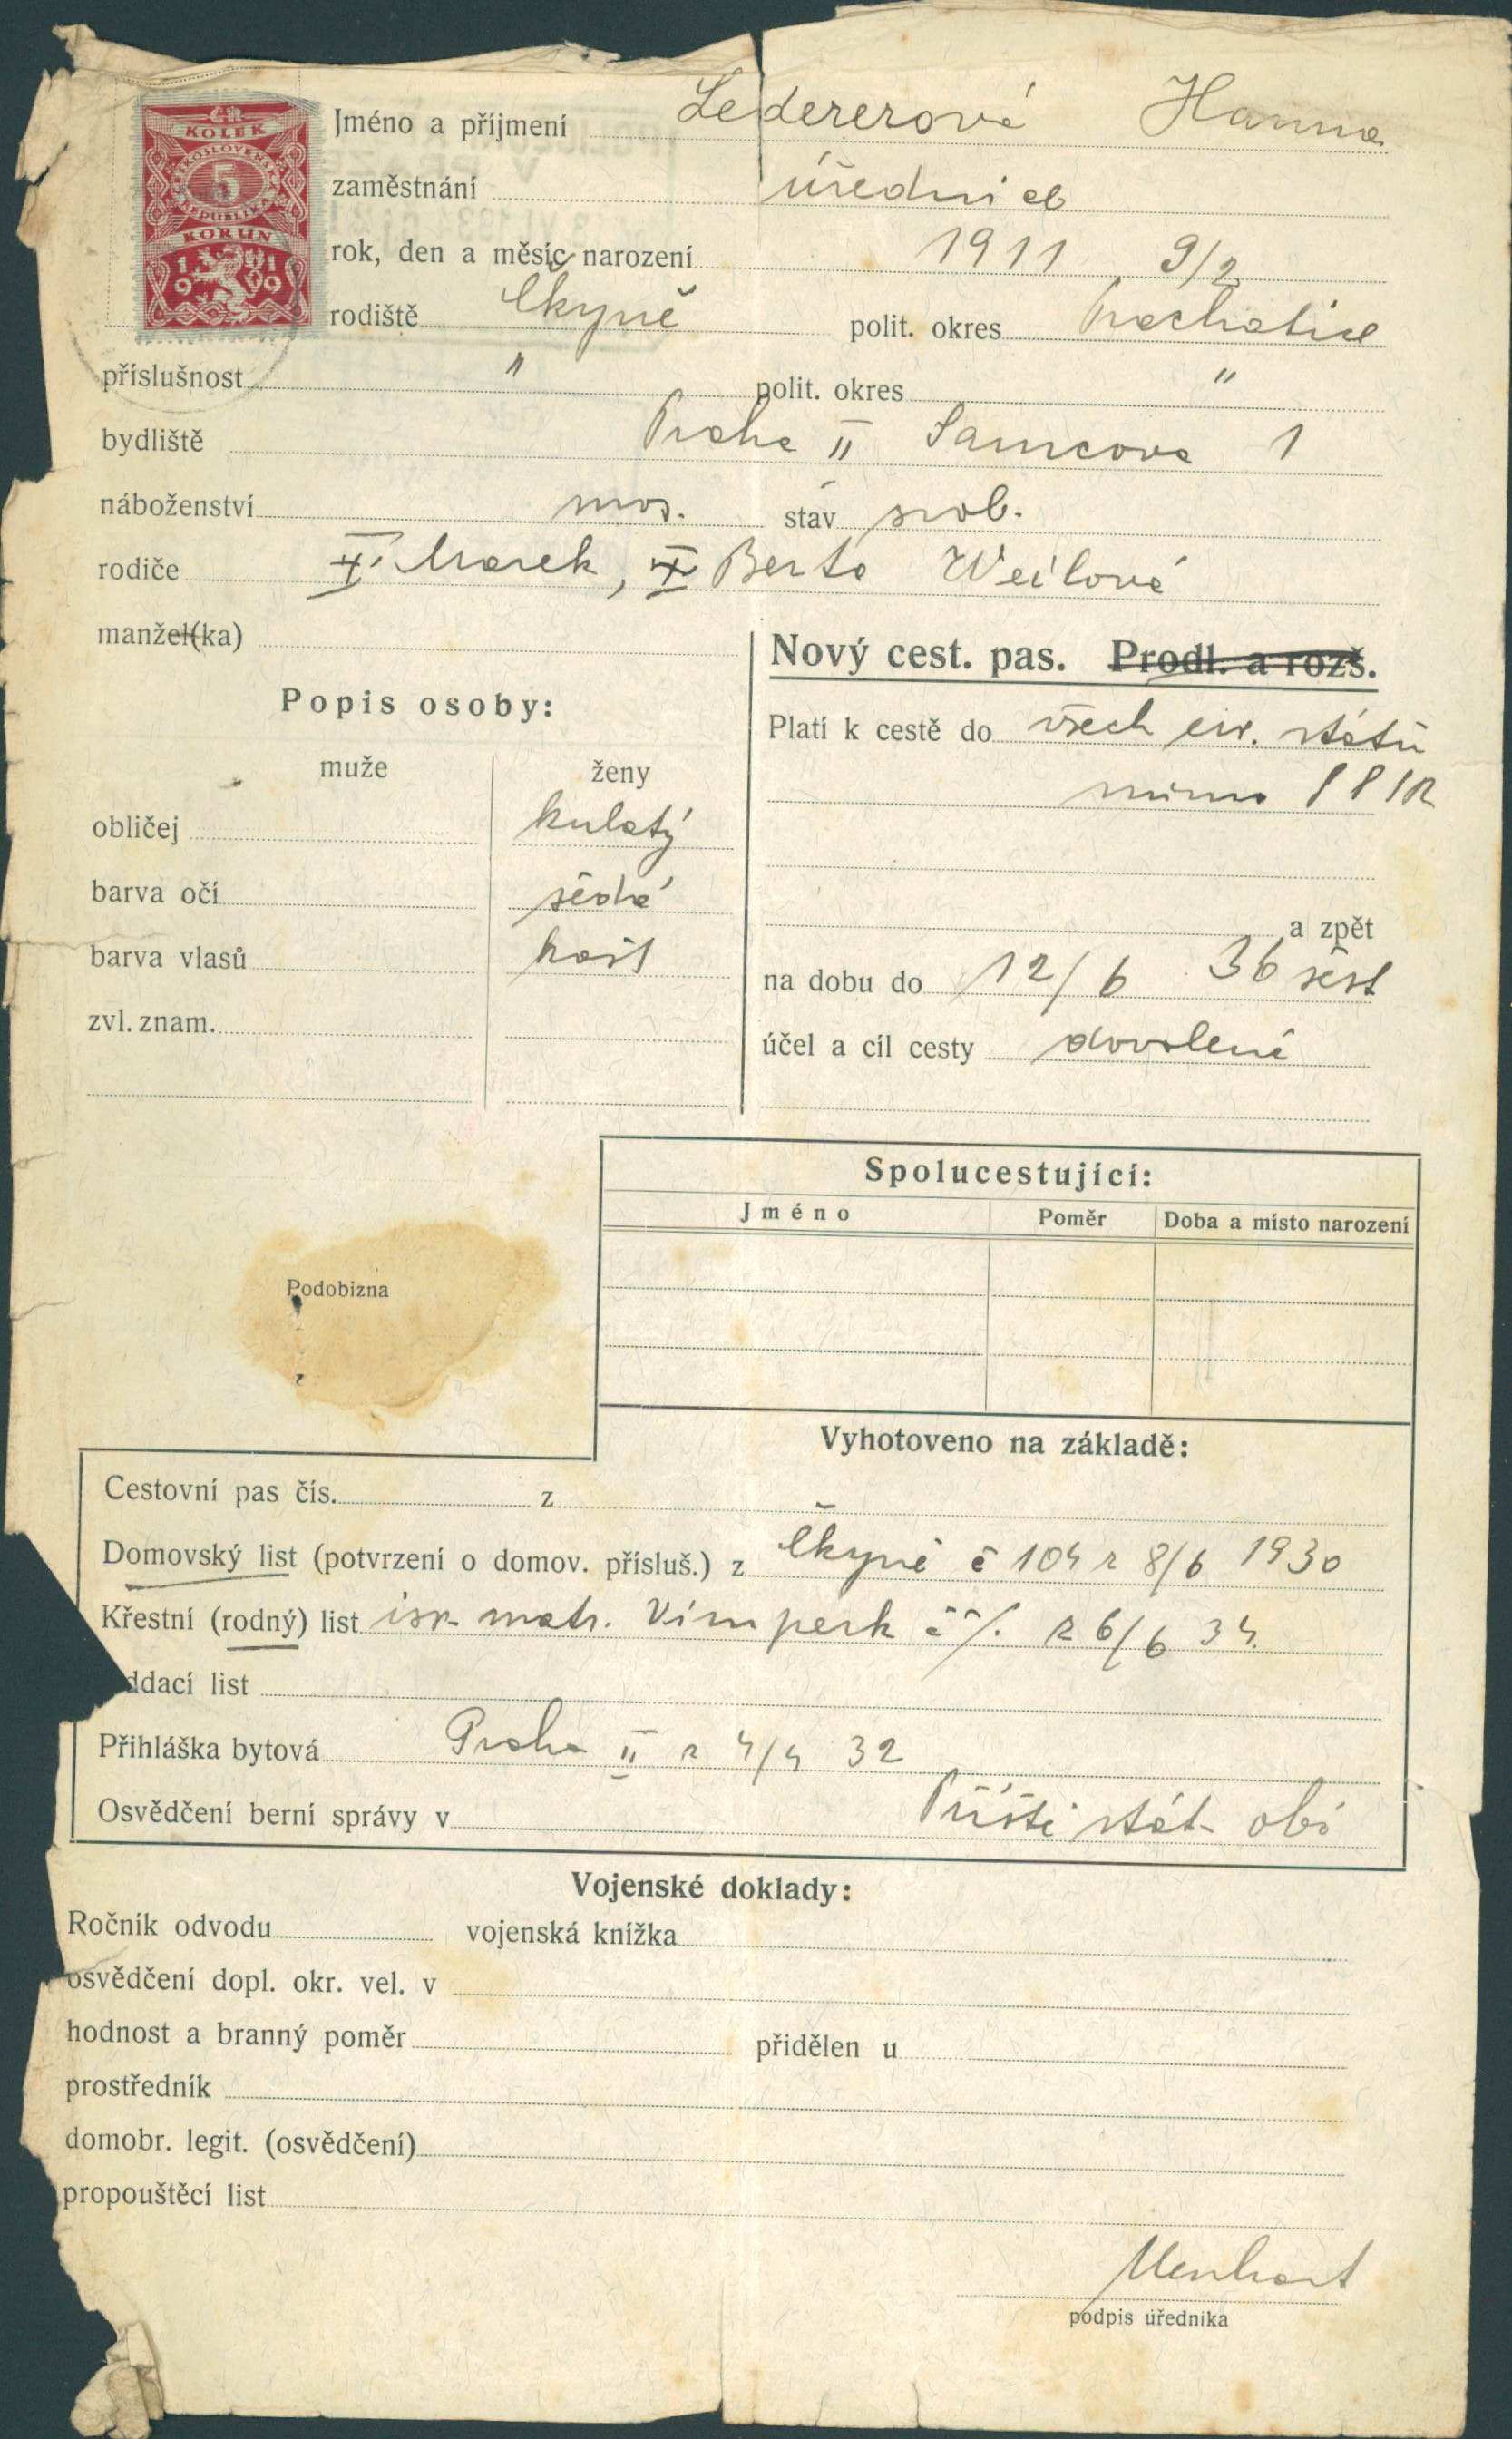 KOLEK
ČESKOSLOVENSKÁ
5
REPUBLIKA
KORUN
1919
Jméno a příjmení Ledererová Hanna
zaměstnání úřednice
rok, den a měsíc narození 1911 9/2
rodiště Čkyně polit. okres Prachatice
příslušnost " polit. okres "
bydliště Praha II Samcova 1
náboženství mos. stav svob.
rodiče Marek, Berta Weilová
manžel(ka)
Nový cest. pas. Prodl. a rozš.
Popis osoby:
Platí k cestě do všech evr. států
mimo SSSR
muže ženy
obličej kulatý
barva očí šedé
barva vlasů kašt
zvl. znam.
a zpět
na dobu do 12/6 36 šest
účel a cíl cesty dovolená
Spolucestující:
Jméno Poměr Doba a místo narození
Podobizna
Vyhotoveno na základě:
Cestovní pas čís. z
Domovský list (potvrzení o domov. přísluš.) z Čkyně č 104 z 8/6 1930
Křestní (rodný) list isr. matr. Vimperk č /. z 6/6 34.
ddací list
Přihláška bytová Praha II z 4/4 32
Osvědčení berní správy v Příště stát. obč
Vojenské doklady:
Ročník odvodu vojenská knížka
osvědčení dopl. okr. vel. v
hodnost a branný poměr přidělen u
prostředník
domobr. legit. (osvědčení)
propouštěcí list
Menhart
podpis úředníka